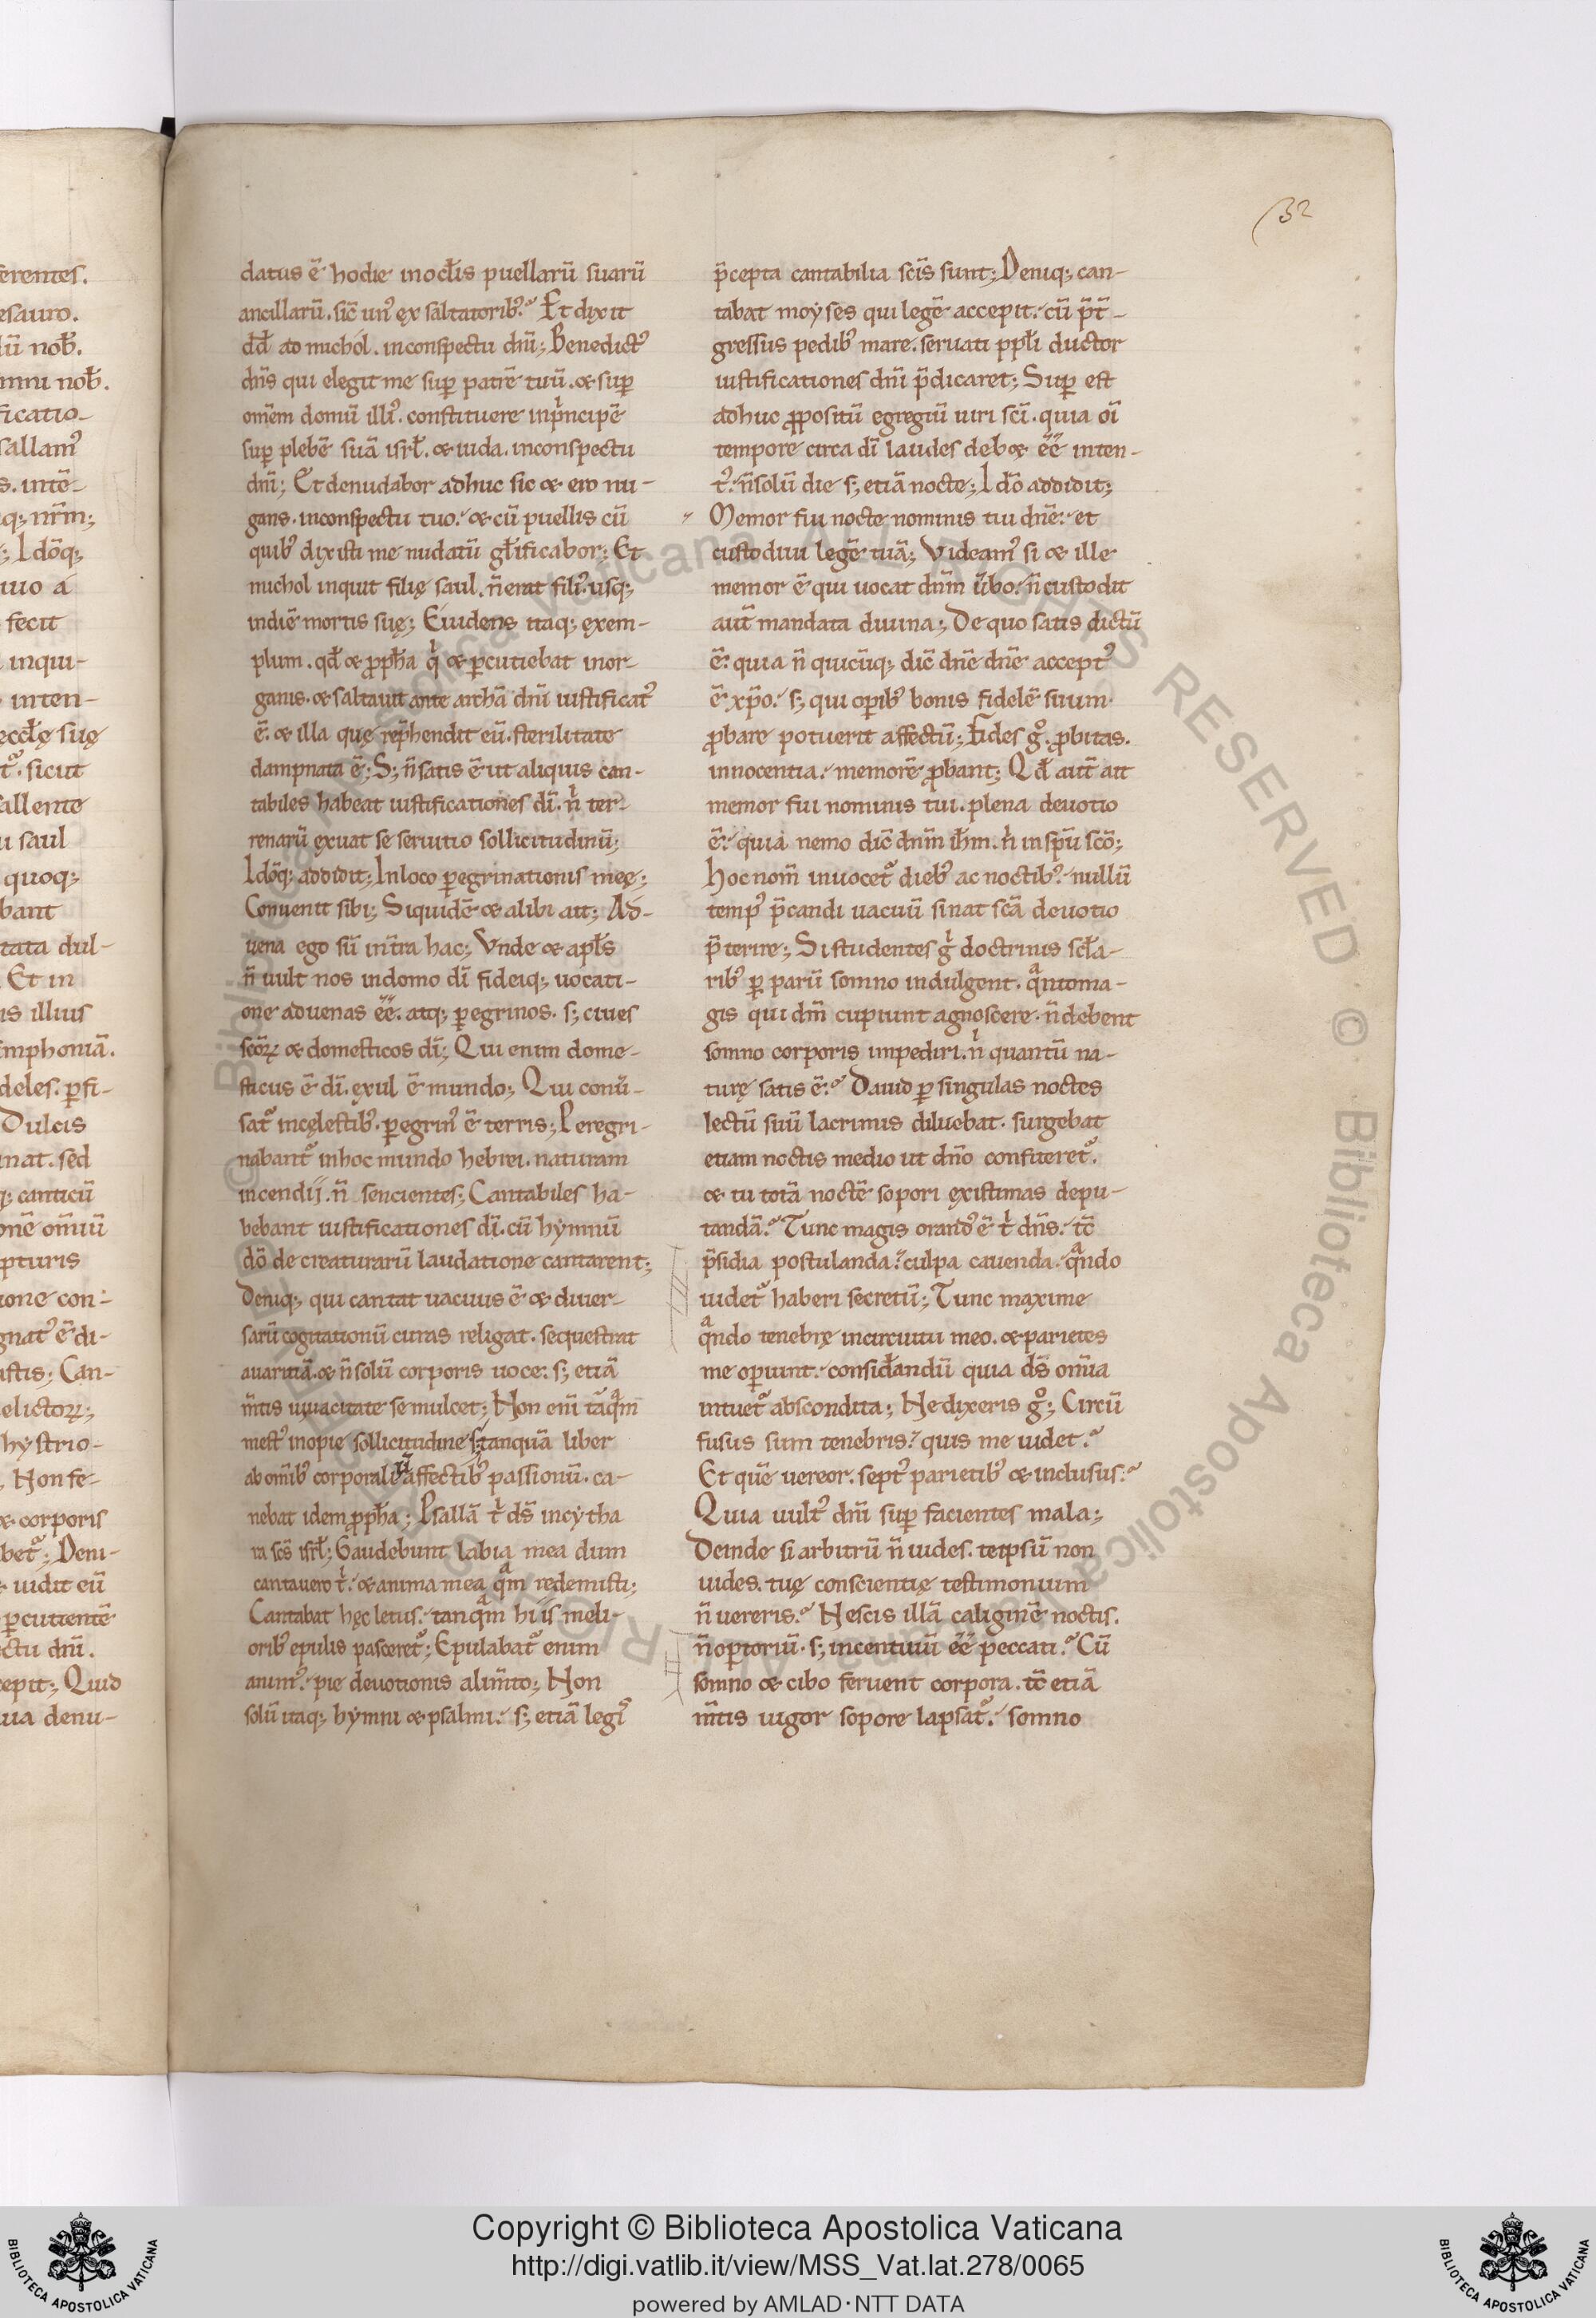 32
ferentes.
esauro.
lū nob̄.
mni nob̄.
ficatio-
sallam᾿
s. intē-
q; nr̄m;
; Idōq;
uuo á
fecit
inqui-
inten-
eccłę suę
sicut
sallente
u saul
quoq;
bant
tata dul-
Et in
is illius
imphoniā.
deles. ꝑfi-
Dulcis
inat. sed
q; canticū
onē om̄iū
pturis
ione con-
gnat᾿ ē di-
iftis; Can-
elictoꝝ;
hystrio-
Non fe-
& corporis
Deni-
uidit eū
ꝑcutientē
ectu dn̄i.
cepit; Quid
ua denu-
datus ē hodie inocłis puellarū suarū
ancillarū. sic̄ un᾿ ex saltatorib᾿? Et dixit
dd̄ ad michol. inconspectu dn̄i; Benedict᾿
dn̄s qui elegit me suꝑ patrē tuū. & suꝑ
om̄em domū illi᾿. constituere inpͥncipē
suꝑ plebē suā isrł. & iuda. inconspectu
dn̄i; Et denudabor adhuc sic & ero nu-
gans. inconspectu tuo. & cū puellis cū
quib᾿ dixisti me nudatū głificabor; Et
michol inquit filię saul. n̄ erat fili᾿ usq;
indiē mortis suę; Euidens itaq; exem-
plum. qd̄ & ꝓpħa qͥ & ꝑcutiebat inor-
ganis. & saltauit ante archā dn̄i iustificat᾿
ē. & illa quę rep̄hendit eū. sterilitate
dampnata ē; S; n̄ satis ē ut aliquis can-
tabiles habeat iustificationes dī. nͥ ter-
renarū exuat se seruitio sollicitudinū;
Idōq; addidit; Inloco ꝑegrinationis meę;
Conuenit sibi; Siquidē & alibi ait; Ad-
uena ego sū int̄ra hac; Vnde & apłs
n̄ uult nos indomo dī fideiq; uocati-
one aduenas ēē. atq; ꝑegrinos. s; ciues
sc̄oꝝ & domesticos dī; Qui enim dome-
sticus ē dī. exul ē mundo; Qui conū-
sat᷑ incęlestib᾿. ꝑegrin᾿ ē terris; Peregri-
nabant᷑ inhoc mundo hebrei. naturam
incendij. n̄ sencientes; Cantabiles ha-
bebant iustificationes dī. cū hymnū
dō de creaturarū laudatione cantarent;
Deniq; qui cantat uacuus ē & diuer-
sarū cogitationū curas religat. sequestrat
auaritiā. & n̄ solū corporis uoce. s; etiā
m̄tis uiuacitate se mulcet; Non eni̅ tāqͣm
mest᾿ inopię sollicitudine s; tanquā liber
ab om̄ib᾿ corporaliū affectib᾿ passionū. ca-
nebat idem ꝓpħa; Psallā tͥ ds̄ incytha
ra sc̄s isrł; Gaudebunt labia mea dum
cantauero tͥ. & anima mea qͣm redemisti;
Cantabat hęc letus. tanqͣm hi is meli-
orib᾿ epulis pasceret᷑; Epulabat᷑ enim
anim᾿. pię deuotionis alim̄to; Non
solū itaq; hymni & psalmi. s; etiā legi᾿
p̄cepta cantabilia sc̄is sunt; Deniq; can-
tabat moyses qui legē accepit. cū p̄t̄-
gressus pedib᾿ mare. seruati ppłi ductor
iustificationes dn̄i p̄dicaret; Suꝑ est
adhuc ꝓpositū egregiū uiri sc̄i. quia oī
tempore circa dī laudes deb& ēē inten-
t᾿. n̄ solū die s; etiā nocte; Idō addidit;
Memor fui nocte nominis tui dn̄e. et
custodiui legē tuā; Videam᾿ si & ille
memor ē qui uocat dn̄m ūbo. n̄ custodit
aut̄ mandata diuina; De quo satis dictū
ē. quia n̄ quicūq; dic̄ dn̄e dn̄e accept᾿
ē xp̄o. s; qui oꝑib᾿ bonis fidelē suum
ꝓbare potuerit affectū; Fides gͦ. ꝓbitas.
innocentia. memorē ꝓbant; Qd̄ aut̄ ait
memor fui nominis tui. plena deuotio
ē. quia nemo dic̄ dn̄m ih̄m. nͥ in sp̄u sc̄o;
Hoc nom̄ inuocet᷑ dieb᾿ ac noctib᾿. nullū
temp᾿ p̄candi uacuū sinat sc̄a deuotio
p̄terire; Si studentes gͥ doctrinis scła-
rib᾿ ꝑ parū somno indulgent. qͣntoma-
gis qui dm̄ cupiunt agnoscere. n̄ debent
somno corporis impediri. nͥ quantū na-
turę satis ē? Dauid ꝑ singulas noctes
lectū suū lacrimis diluebat. surgebat
etiam noctis medio ut dn̄o confiteret᷑.
& tu totā noctē sopori existimas depu-
tandā? Tunc magis orand᾿ ē tͥ dn̄s. tc̄
p̄sidia postulanda. culpa cauenda. qͣndo
uidet᷑ haberi secretū; Tunc maxime
qͣndo tenebrę incircuitu meo. & parietes
me oꝑiunt. considandū quia ds̄ om̄ia
intuet᷑ abscondita; Ne dixeris gͦ; Circū
fusus sum tenebris. quis me uidet?
Et quē uereor. sept᾿ parietib᾿ & inclusus?
Quia uult᾿ dn̄i suꝑ facientes mala;
Deinde si arbitrū n̄ uides. teipsū non
uides. tuę conscientię testimonium
n̄ uereris? Nescis illā caliginē noctis.
n̄ oꝑtoriū. s; incentiuū ēē peccati? Cū
somno & cibo feruent corpora. tc̄ etiā
m̄tis uigor sopore lapsat᷑. somno
Copyright © Biblioteca Apostolica Vaticana
http://digi.vatlib.it/view/MSS_Vat.lat.278/0065
powered by AMLAD·NTT DATA